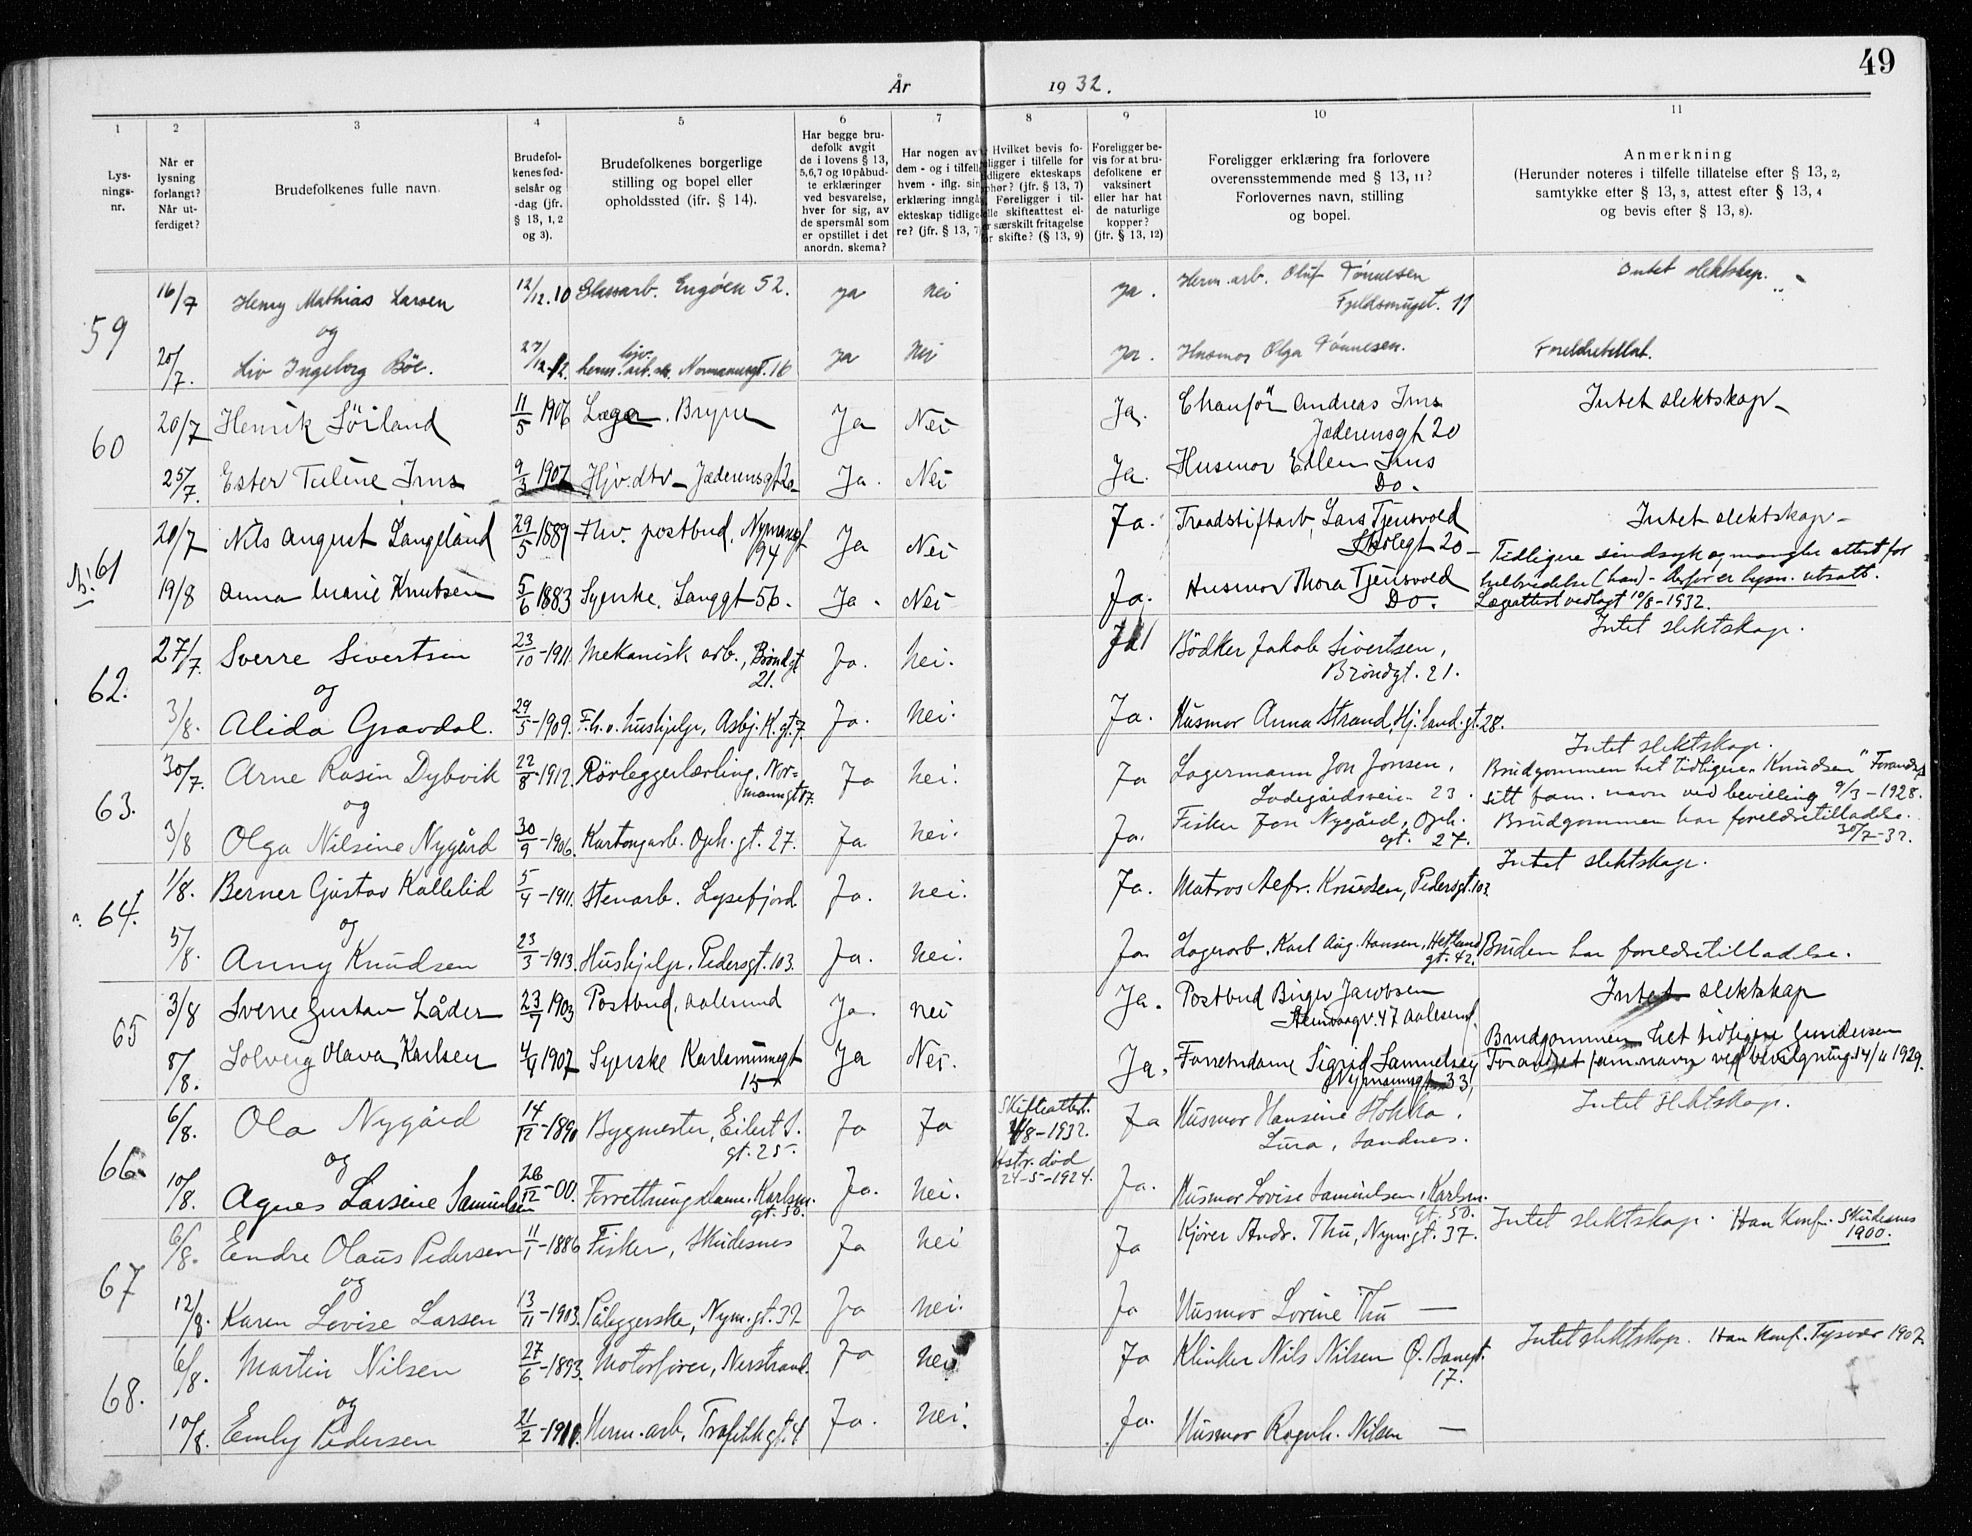 49
År 1932.
1 2 3 4 5 6 7 8 9 10 11
Lys-
nings-
nr.
Når er
lysning
forlangt?
Når ut-
ferdiget?
Brudefolkenes fulle navn.
Brudefol-
kenes fød-
selsår og
-dag (jfr.
§ 13, 1, 2
og 3).
Brudefolkenes borgerlige
stilling og bopel eller
opholdssted (jfr. § 14).
Har begge bru-
defolk avgit
de i lovens § 13,
5,6,7 og 10 påbud-
te erklæringer
ved besvarelse,
hver for sig, av
de spørsmål som
er opstillet i det
anordn. skema?
Har nogen av
dem - og i tilfelle
hvem - iflg. sin
erklæring inngå
ekteskap tidlige-
re? (jfr. § 13, 7
Hvilket bevis fo-
religger i tilfelle for
tidligere ekteskaps
ophør? (jfr. § 13, 7)
Foreligger i til-
felle skifteattest el-
særskilt fritagelse
for skifte? (§ 13, 9)
Foreligger be-
vis for at bru-
defolkene er
vaksinert
eller har hat
de naturlige
kopper?
(jfr. § 13, 12)
Foreligger erklæring fra forlovere
overensstemmende med § 13, 11?
Forlovernes navn, stilling
og bopel.
Anmerkning
(Herunder noteres i tilfelle tillatelse efter § 13, 2,
samtykke efter § 13, 3, attest efter § 13, 4
og bevis efter § 13, 8).
59 16/7 Henry Mathias Larsen 12/12.10 Glassarb. Engøen 52. ja nei ja. Herm.arb. Oluf Tønnesen Intet slektskap.
Fjeldsmuget. 11
og
20/7. Liv Ingeborg Böe. 27/12.12. hjv. herm.arb.ske Normannsgt.16 ja nei ja. Husmor Olga Tønnesen. Foreldretillat.
60 20/7 Henrik Sörland 11/5 1906 Bryne Ja Nei Ja. Chauför Andreas Ims Intet slektskap
Jæderensgt 20
25/7. Ester Tuline Ims 9/3 1907 Hjv.dtr Jæderensgt 20 Ja. Nei Ja. Husmor Ellen Ims
Do.
61 20/7 Nils August Langeland 29/5 1889 Fhv. postbud. Nymansgt 94 Ja Nei Ja. Traadstiftarb. Lars Tjensvold Intet slektskap
20
Tidligere sindsyk og mangler attest for
helbredelse (han) - Derfor er lysn. utsatt.
19/8 Anna Marie Knutsen 5/6 1883 Syerske. Langgt 56. Ja. Nei Ja. Husmor Thora Tjensvold Lægeattest vedlagt 10/8-1932.
Do.
62. 27/7. Sverre Sivertsen 23/10-1911. Mekanisk arb., Bröndgt 21. Ja. Nei. Ja Bödker Jakob Sivertsen, Intet slektskap.
Bröndgt. 21.
og
3/8. Alida Gravdal. 29/5-1909. F.h.v. hushjelp, Asbj. K. gt. 7. Ja. Nei. Ja. Husmor Anna Strand, Hj.land.gt. 28.
63. 30/7. Arne Rasin Dybvik 22/8-1912. Rörleggerlærling, Nor- Ja Nei. Ja Lagermann Jon Jonsen, Intet slektskap.
manngt 17. Ladegårdsvei 23. Brudgommen het tidligere „Knudsen" Forandret
og sitt fam. navn ved bevilling 9/3-1928.
3/8 Olga Nilsine Nygård 30/9-1906. Kartongarb. Oph. gt. 27. Ja. Nei. Ja. Fisker Jon Nygård, Oph. Brudgommen har foreldretilladelse.
gt. 27. 30/7-32.
64. 1/8. Berner Gustav Kallelid 5/4-1911. Stenarb. Lysefjord. Ja. Nei. Ja. Matros Alfr. Knudsen, Pedersgt. 103 Intet slektskap.
og
5/8. Anny Knudsen 23/3-1913. Hushjelp. Pedersgt. 103. Ja. Nei. Ja Lagerarb. Karl Aug. Hansen, Hetland Bruden har foreldretilladelse.
gt. 42.
65 3/8 Sverre Gustav Låder 23/7 1903 Postbud, Aalesund Ja. nei Ja. Postbud Birger Jacobsen Intet slektskap
Stenvaagv. 47 Aalesund.
Brudgommen het tidligere Gundersen
8/8. Solveig Olava Karlsen 4/9 1907 Syerske Karlsminnegt Ja Nei. Ja. Forretn.dame Sigrid Samuelsen Forandret fam.navn ved bevilgning 14/11 1929.
15 Nymansgt 33,
66. 6/8. Ola Nygård 14/12-1890 Bygmester, Eilert S. Ja Ja Skifteattest. Ja Husmor Hansine Stokka. Intet slektskap.
gt. 25. 4/8-1932. Lura, Sandnes.
og Hstr. död
24-5-1924.
10/8. Agnes Larsine Samuelsen 26/12-00. Forretningsdame. Karlsm. Ja. Nei. Ja. Husmor Lovise Samuelsen, Karlsm.
gt. 50. gt. 50.
67 6/8. Endre Olaus Pedersen 11/1-1886 Fisker, Skudesnes Ja Nei Ja Kjörer Andr. Thu, Nym.gt. 37. Intet slektskap. Han Konf. Skudesnes
1900.
og
12/8. Karen Lovise Larsen 13/11-1903. Påleggerske, Nym.gt. 37 Ja Nei. Ja Husmor Lovine Thu —
68. 6/8. Martin Nilsen 27/6-1893. Motorfører, Nerstrand. Ja Nei. Ja Klinker Nils Nilsen Ø. Banegt. Intet slektskap. Han Konf. Tysvær 1907.
17.
og
10/8. Emly Pedersen 21/2-1911. Herm. arb. Trafikkgt. 4 Ja. Nei. Ja. Husmor Ragnh. Nilsen —